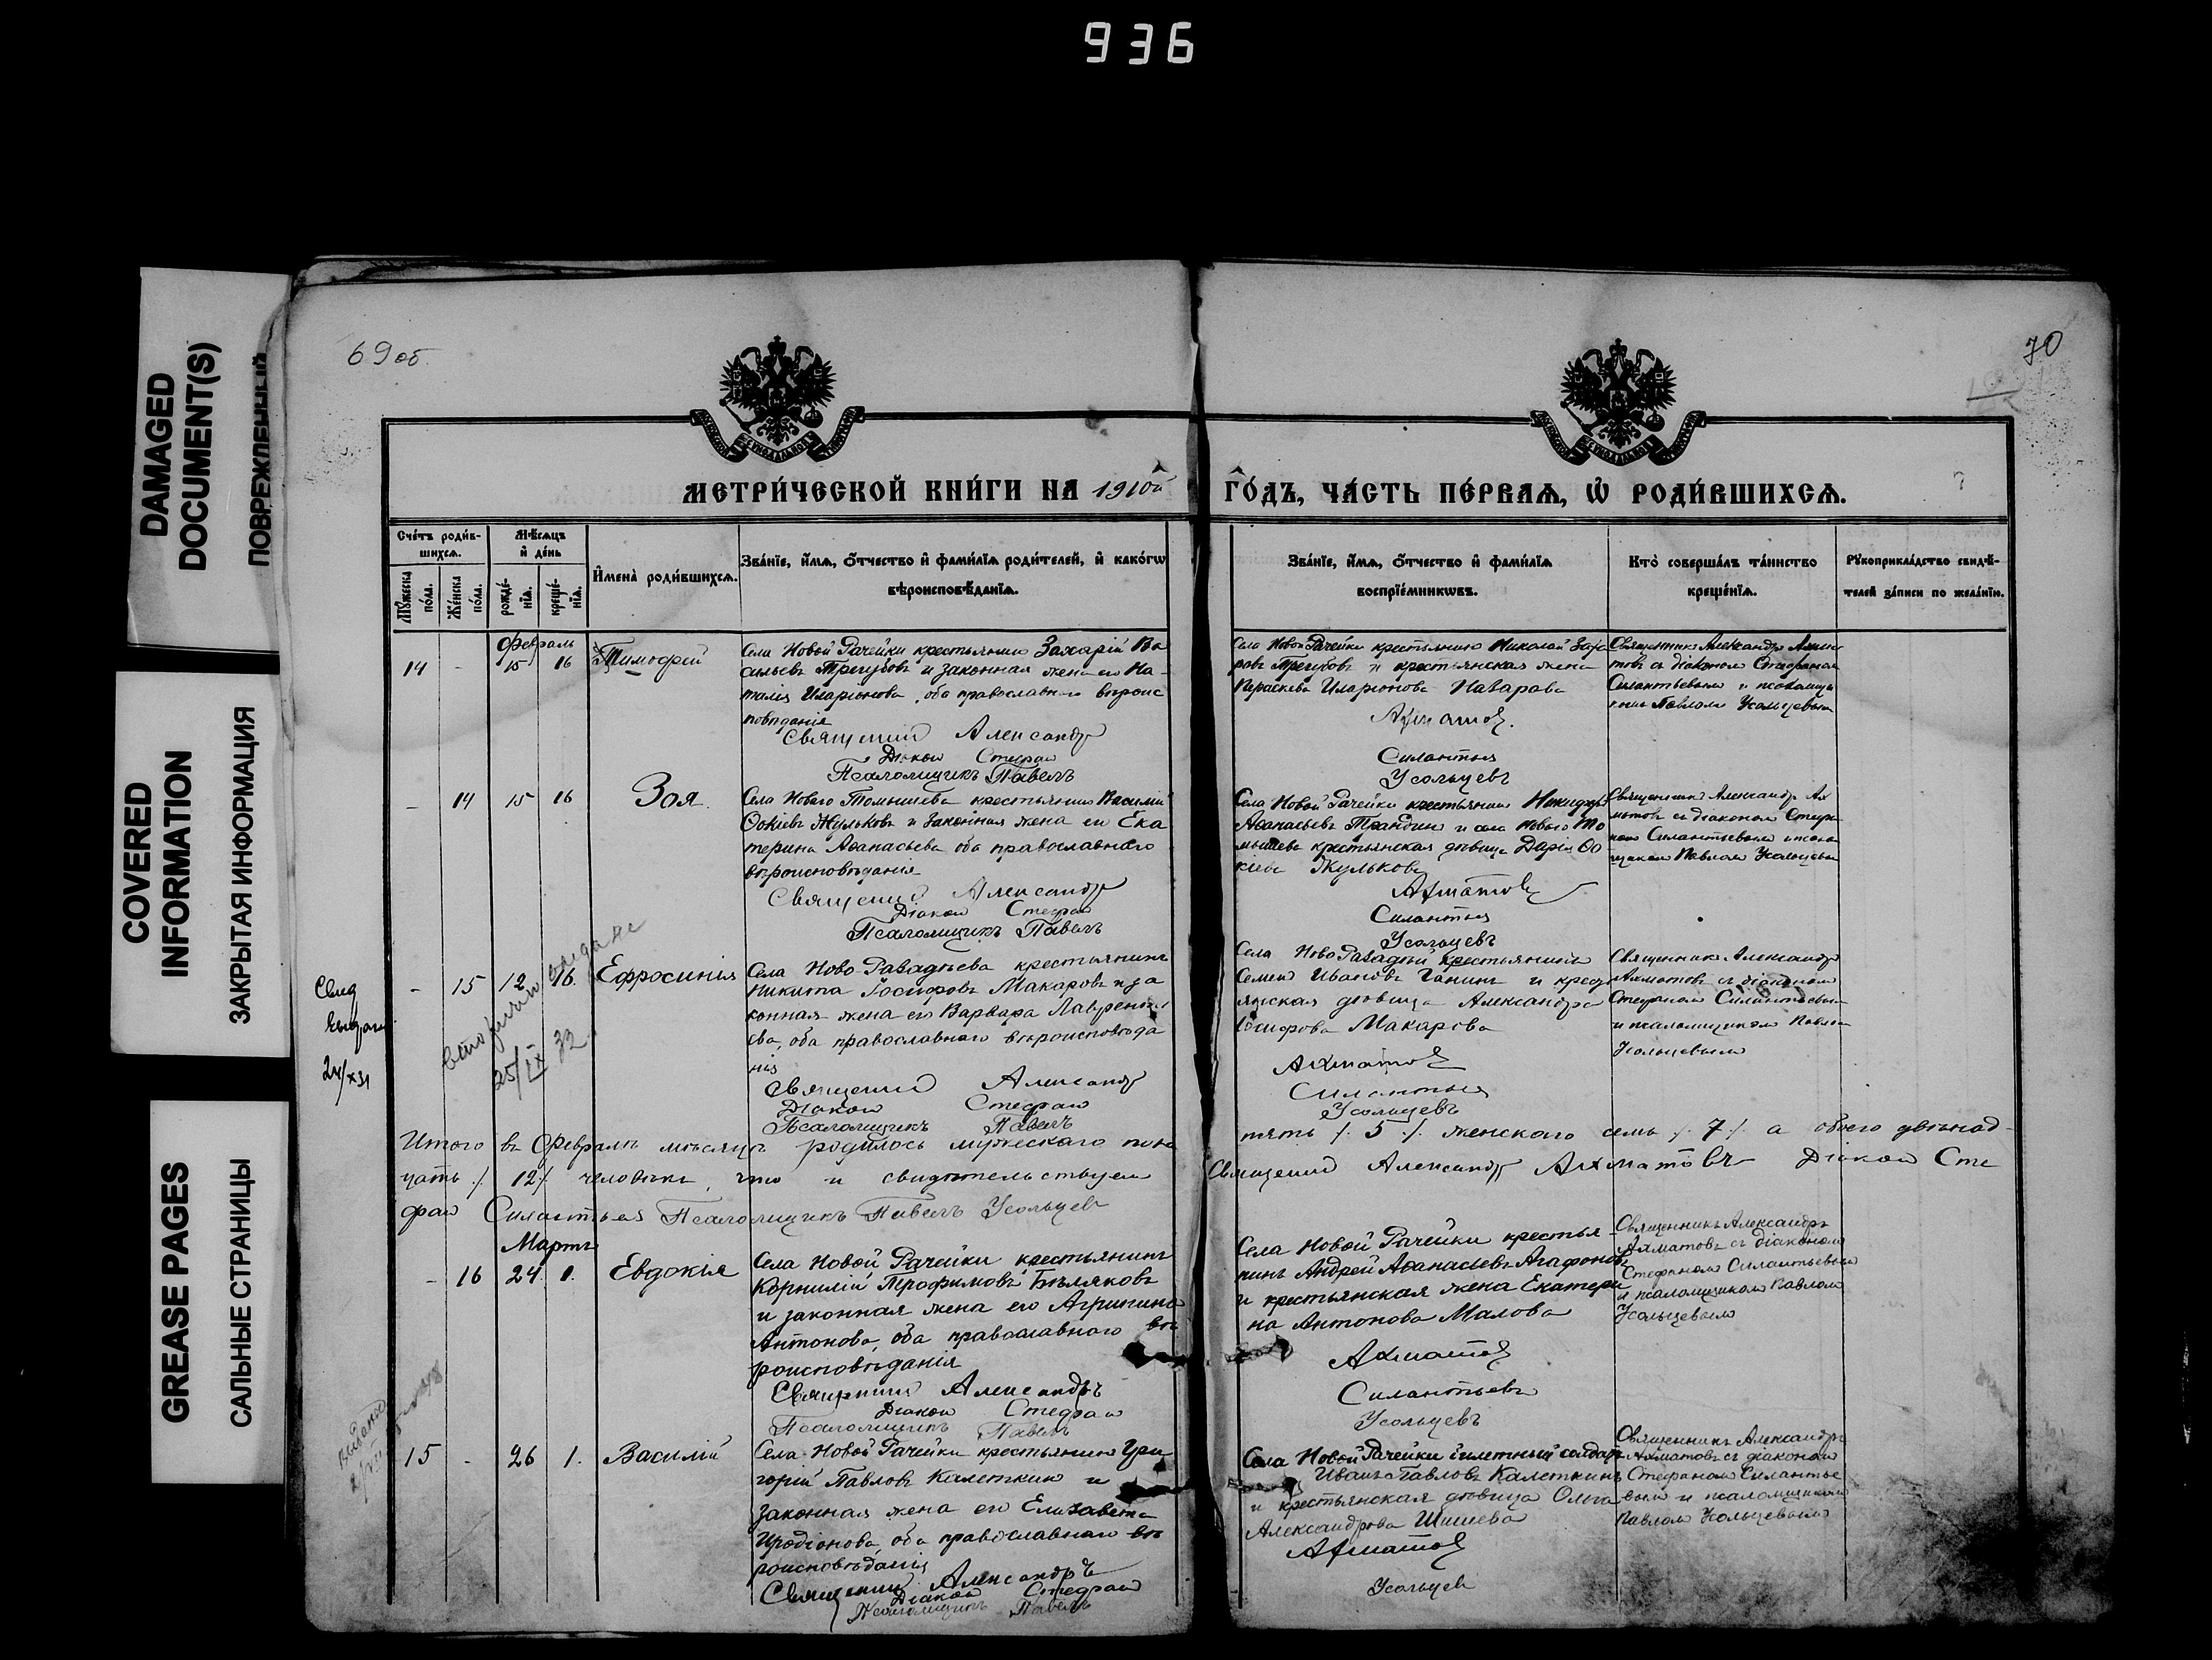 936
DAMAGED
DOCUMENT(S)
ПОВРЕЖДЕННЫЙ
COVERED
INFORMATION
ЗАКРЫТАЯ ИНФОРМАЦИЯ
GREASE PAGES
САЛЬНЫЕ СТРАНИЦЫ
69 об.
70
МЕТРИ́ЧЕСКОЙ КНИ́ГИ НА 1910й
ГО́ДЪ, ЧА́СТЬ ПЕ́РВАѦ, Ѡ҆ РОДИ́ВШИХСѦ.
Сче́тъ роди́в-
шихсѧ.
Мѣ́сѧцъ
и҆ де́нь
Мꙋ́жеска по́ла.
Же́нска по́ла.
рожде́-
нїѧ.
креще́-
нїѧ.
И҆мена̀ роди́вшихсѧ.
Зва́нїе, и҆́мѧ, ѻ҆́тчество и҆ фами́лїѧ роди́телей, и҆ како́гѡ
вѣроисповѣ́данїѧ.
Зва́нїе, и҆́мѧ, ѻ҆́тчество и҆ фами́лїѧ
воспрїе́мникѡвъ.
Кто̀ соверша́лъ та́инство
креще́нїѧ.
Рꙋкоприкла́дство свидѣ́-
телей за́писи по жела́нїю.
Февраль
14 - 15 16 Тимофей
Села Новой Рачейки крестьянинъ Захарій Ва
сильевъ Трегубовъ и законная жена его На-
талія Иларіонова, оба православнаго вѣроис
повѣданія
Священникъ Александр
Діакон Стефан
Псаломщикъ Павелъ
Села Новой Рачейки крестьянинъ Николай Заха
ровъ Трегубовъ и крестьянская жена
Параскева Иларіонова Назарова
Ахматов.
Силантьев
Усольцевъ
Священникъ Александр Ахма
товъ съ діаконом Стефаном
Силантьевым и псаломщи
комъ Павлом Усольцевым
- 14 15 16 Зоя.
Села Новаго Томышева крестьянинъ Василій
Ѳокіевъ Жульковъ и законная жена его Ека
терина Аѳанасьева оба православнаго
вѣроисповѣданія
Священник Александр
Діакон Стефан
Псаломщикъ Павелъ
Села Новой Рачейки крестьянинъ
Аѳанасьевъ и села Новаго То
мышева крестьянская дѣвица Дарія Ѳо
кіева Жулькова
Ахматов
Силантьев
Усольцевъ
Священникъ Александр Ах
матов съ діаконом Стефа
ном Силантьевым и псало
мщиком Павлом Усольцевым
Свид
выдан
24/X 31
вторично выдано
25/IX 32
- 15 12 16. Ефросинія
Села Ново-Равадѣева крестьянинъ
Никита Іосифовъ Макаровъ и за
конная жена его Варвара Лаврентье
ва, оба православнаго вѣроисповѣда
нія
Священник Александр
Діакон Стефан
Псаломщикъ Павелъ
Села Ново крестьянинъ
Семен Ивановъ Ганинъ и крест
янская дѣвица Александра
Іосифова Макарова
Ахматов
Силантьев
Усольцевъ
Священникъ Александр
Ахматовъ съ діаконом
Стефаном Силантьевым
и псаломщиком Павлом
Усольцевым
Итого въ Февралѣ мѣсяцѣ родилось мужескаго пола
пять /. 5 ./. женскаго семь /. 7 /. а обоего двѣнад-
цать /. 12 /. человѣкъ, что и свидѣтельствуем
Священник Александр Ахматовъ Діакон Сте
фан Силантьев Псаломщикъ Павелъ Усольцев
Мартъ
- 16 24. 1. Евдокія
Села Новой Рачейки крестьянинъ
Корнилій Трофимовъ Бѣляковъ
и законная жена его Агрипина
Антонова, оба православнаго вѣ
роисповѣданія
Священник Александръ
Діакон Стефан
Псаломщикъ Павелъ
Села Новой Рачейки крестья-
нинъ Андрей Аѳанасьевъ Агафоновъ
и крестьянская жена Екатери
на Антонова Малова
Ахматов
Силантьевъ
Усольцевъ
Священникъ Александръ
Ахматовъ съ діаконом
Стефаном Силантьевым
и псаломщиком Павлом
Усольцевым
15 - 26 1. Василій
Села Новой Рачейки крестьянинъ Гри
горій Павловъ Калеткинъ и
законная жена его Елизавета
Иродіонова, оба православнаго вѣ
роисповѣданія
Священник Александръ
Діакон Стефан
Псаломщикъ Павелъ
Села Новой Рачейки солдатъ
Иванъ Павловъ Калеткинъ
и крестьянская дѣвица Ольга
Александрова Шишева
Ахматов
Усольцев
Священникъ Александръ
Ахматовъ съ діаконом
Стефаном Силантье
вым и псаломщиком
Павлом Усольцевым